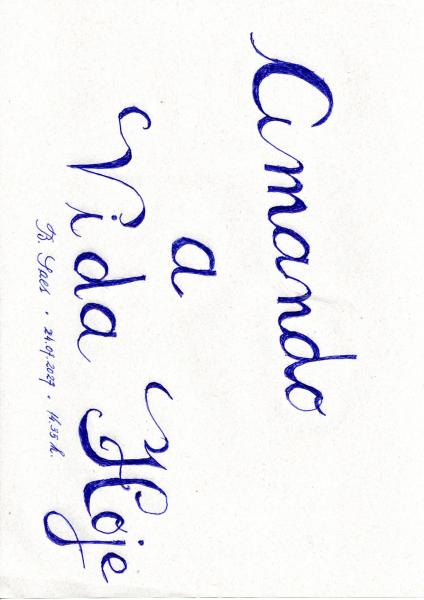 Amando
a
Vida Hoje
B. Saes . 24.07.2027 . 14.35 h.